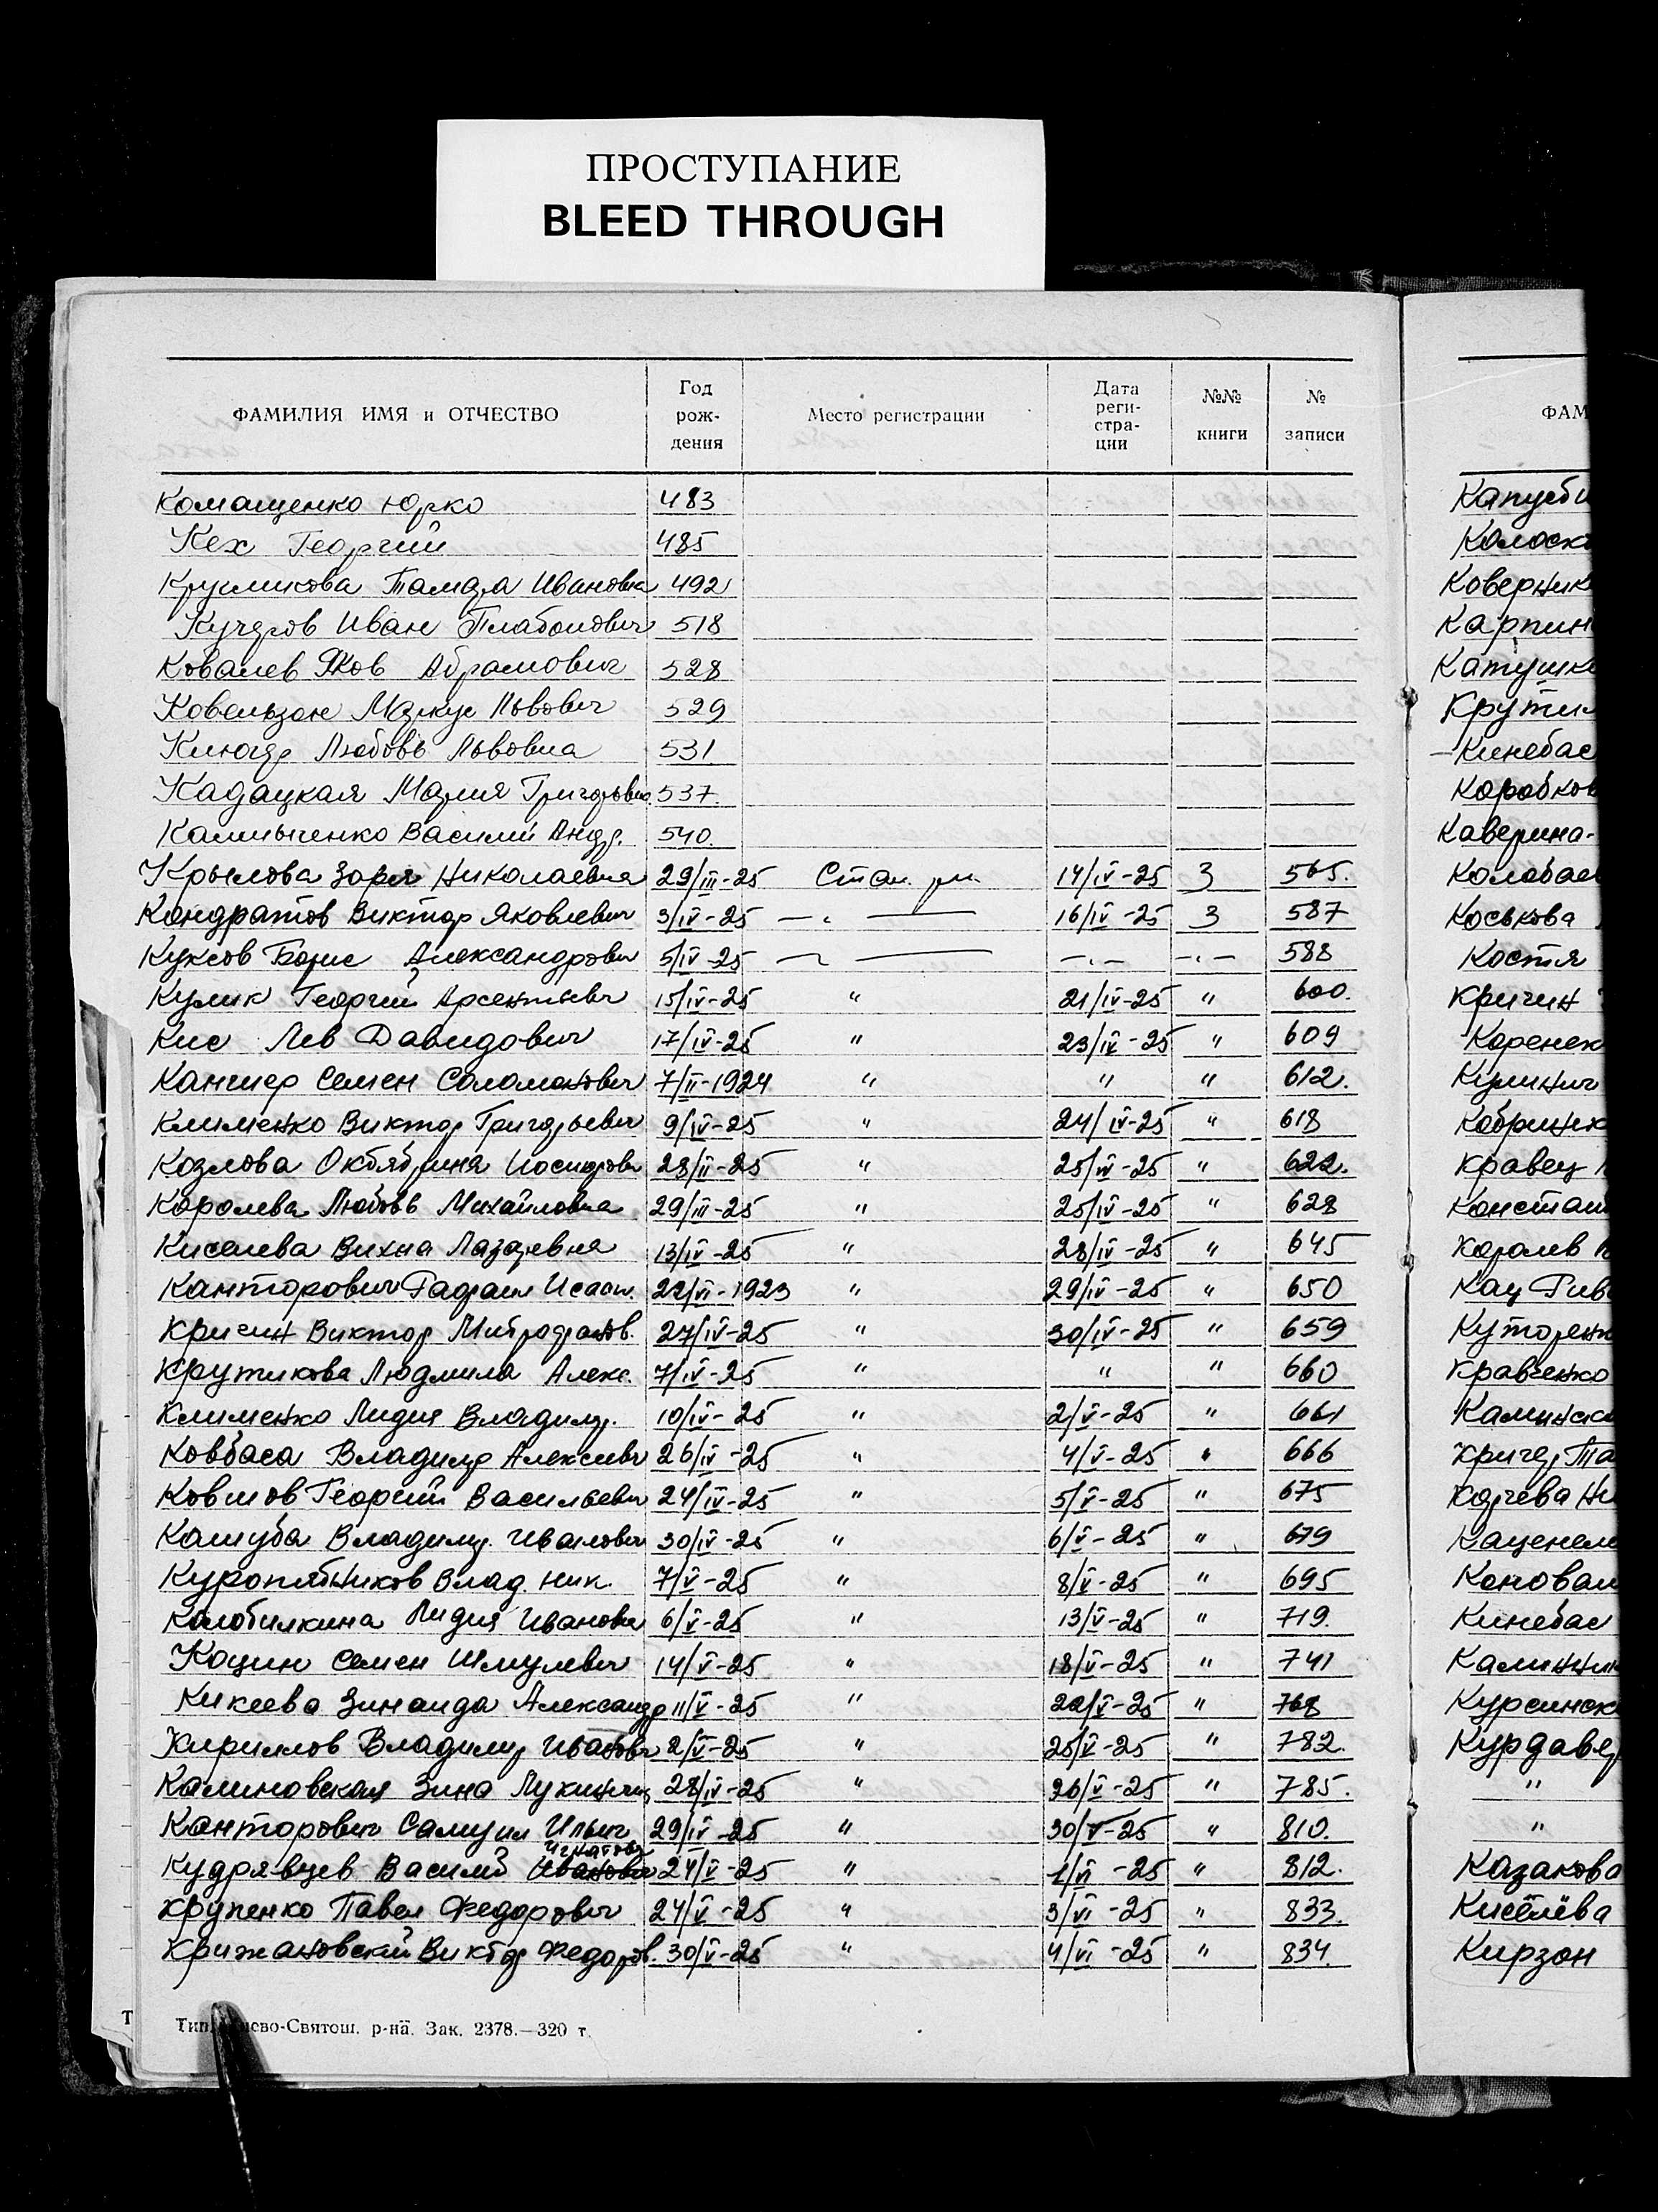 ПРОСТУПАНИЕ
BLEED THROUGH
ФАМИЛИЯ ИМЯ и ОТЧЕСТВО Год рож- дения Место регистрации Дата реги- стра- ции №№ книги № записи ФАМ
Комащенко Юрко 483
Кех Георгий 485
Кругликова Тамара Ивановна 492
Кучеров Иван 518
Ковалев Яков Абрамович 528
Ковельзон Маркус Львович 529
Любовь Львовна 531
Кадацкая Мария Григорьевна 537.
Василий Андр. 540.
Крылова Зоря Николаевна 29/III-25 Стал. рн. 14/IV-25 3 565.
Кондратов Виктор Яковлевич 3/IV-25 —„— 16/IV-25 3 587
Куксов Борис Александрович 5/IV-25 —„— —„— —„— 588
Кулик Георгий Арсентьевич 15/IV-25 " 21/IV-25 " 600.
Кис Лев Давидович 17/IV-25 " 23/IV-25 " 609
Канцлер Семен Соломонович 7/II-1924 " " " 612.
Клименко Виктор Григорьевич 9/IV-25 " 24/IV-25 " 618
Козлова Октябрина Иосифовн 28/II-25 " 25/IV-25 " 622.
Королева Любовь Михайловна 29/III-25 " 25/IV-25 " 628
Киселева Лазаревна 13/IV-25 " 28/IV-25 " 645
Канторович Рафаил Исаак. /VI-1923 " 29/IV-25 " 650
Кричин Виктор Митрофанов. 27/IV-25 " 30/IV-25 " 659
Крутикова Людмила Алекс. 7/IV-25 " " " 660
Клименко Лидия Владимир. 10/IV-25 " 2/V-25 " 661
Ковбаса Владимир Алексеевич 26/IV-25 " 4/V-25 " 666
Ковшов Георгий Васильевич 24/IV-25 " 5/V-25 " 675
Кашуба Владимир Иванович 30/IV-25 " 6/V-25 " 679
Куропятников Влад. Ник. 7/V-25 " 8/V-25 " 695
Колобилкина Лидия Ивановн 6/V-25 " 13/V-25 " 719.
Коцин Семен Шмулевич 14/V-25 " 18/V-25 " 741
Кикеева Зинаида Александр 11/V-25 " 22/V-25 " 768
Кириллов Владимир Иванович 2/V-25 " 25/V-25 " 782.
Калиновская Зина Лукинич 28/IV-25 " 26/V-25 " 785.
Канторович Самуил Ильич 29/IV-25 " 30/V-25 " 810.
Игнатович
Кудрявцев Василий Иванович 24/V-25 " 1/VI-25 " 812.
Крупенко Павел Федорович 24/V-25 " 3/VI-25 " 833.
Крижановский Виктор Федоров. 30/V-25 " 4/VI-25 " 834.
Зак. 2378.—320 т.
Т
Коверник
Карпин
Катушк
Крутил
Кинебас
Коробков
Каверина-
Колобаев
Коськова
Костя
Кричин
Коренек
Кулинич
Кобринск
Кравец
Констан
Королев
Кац Рив
Куторенк
Кравченко
Каминск
Кричер Та
Корчева Ни
Каценел
Коновал
Кинебас
Калинник
Курсинск
Курдавер
"
"
Казакова
Киселёва
Кирзон